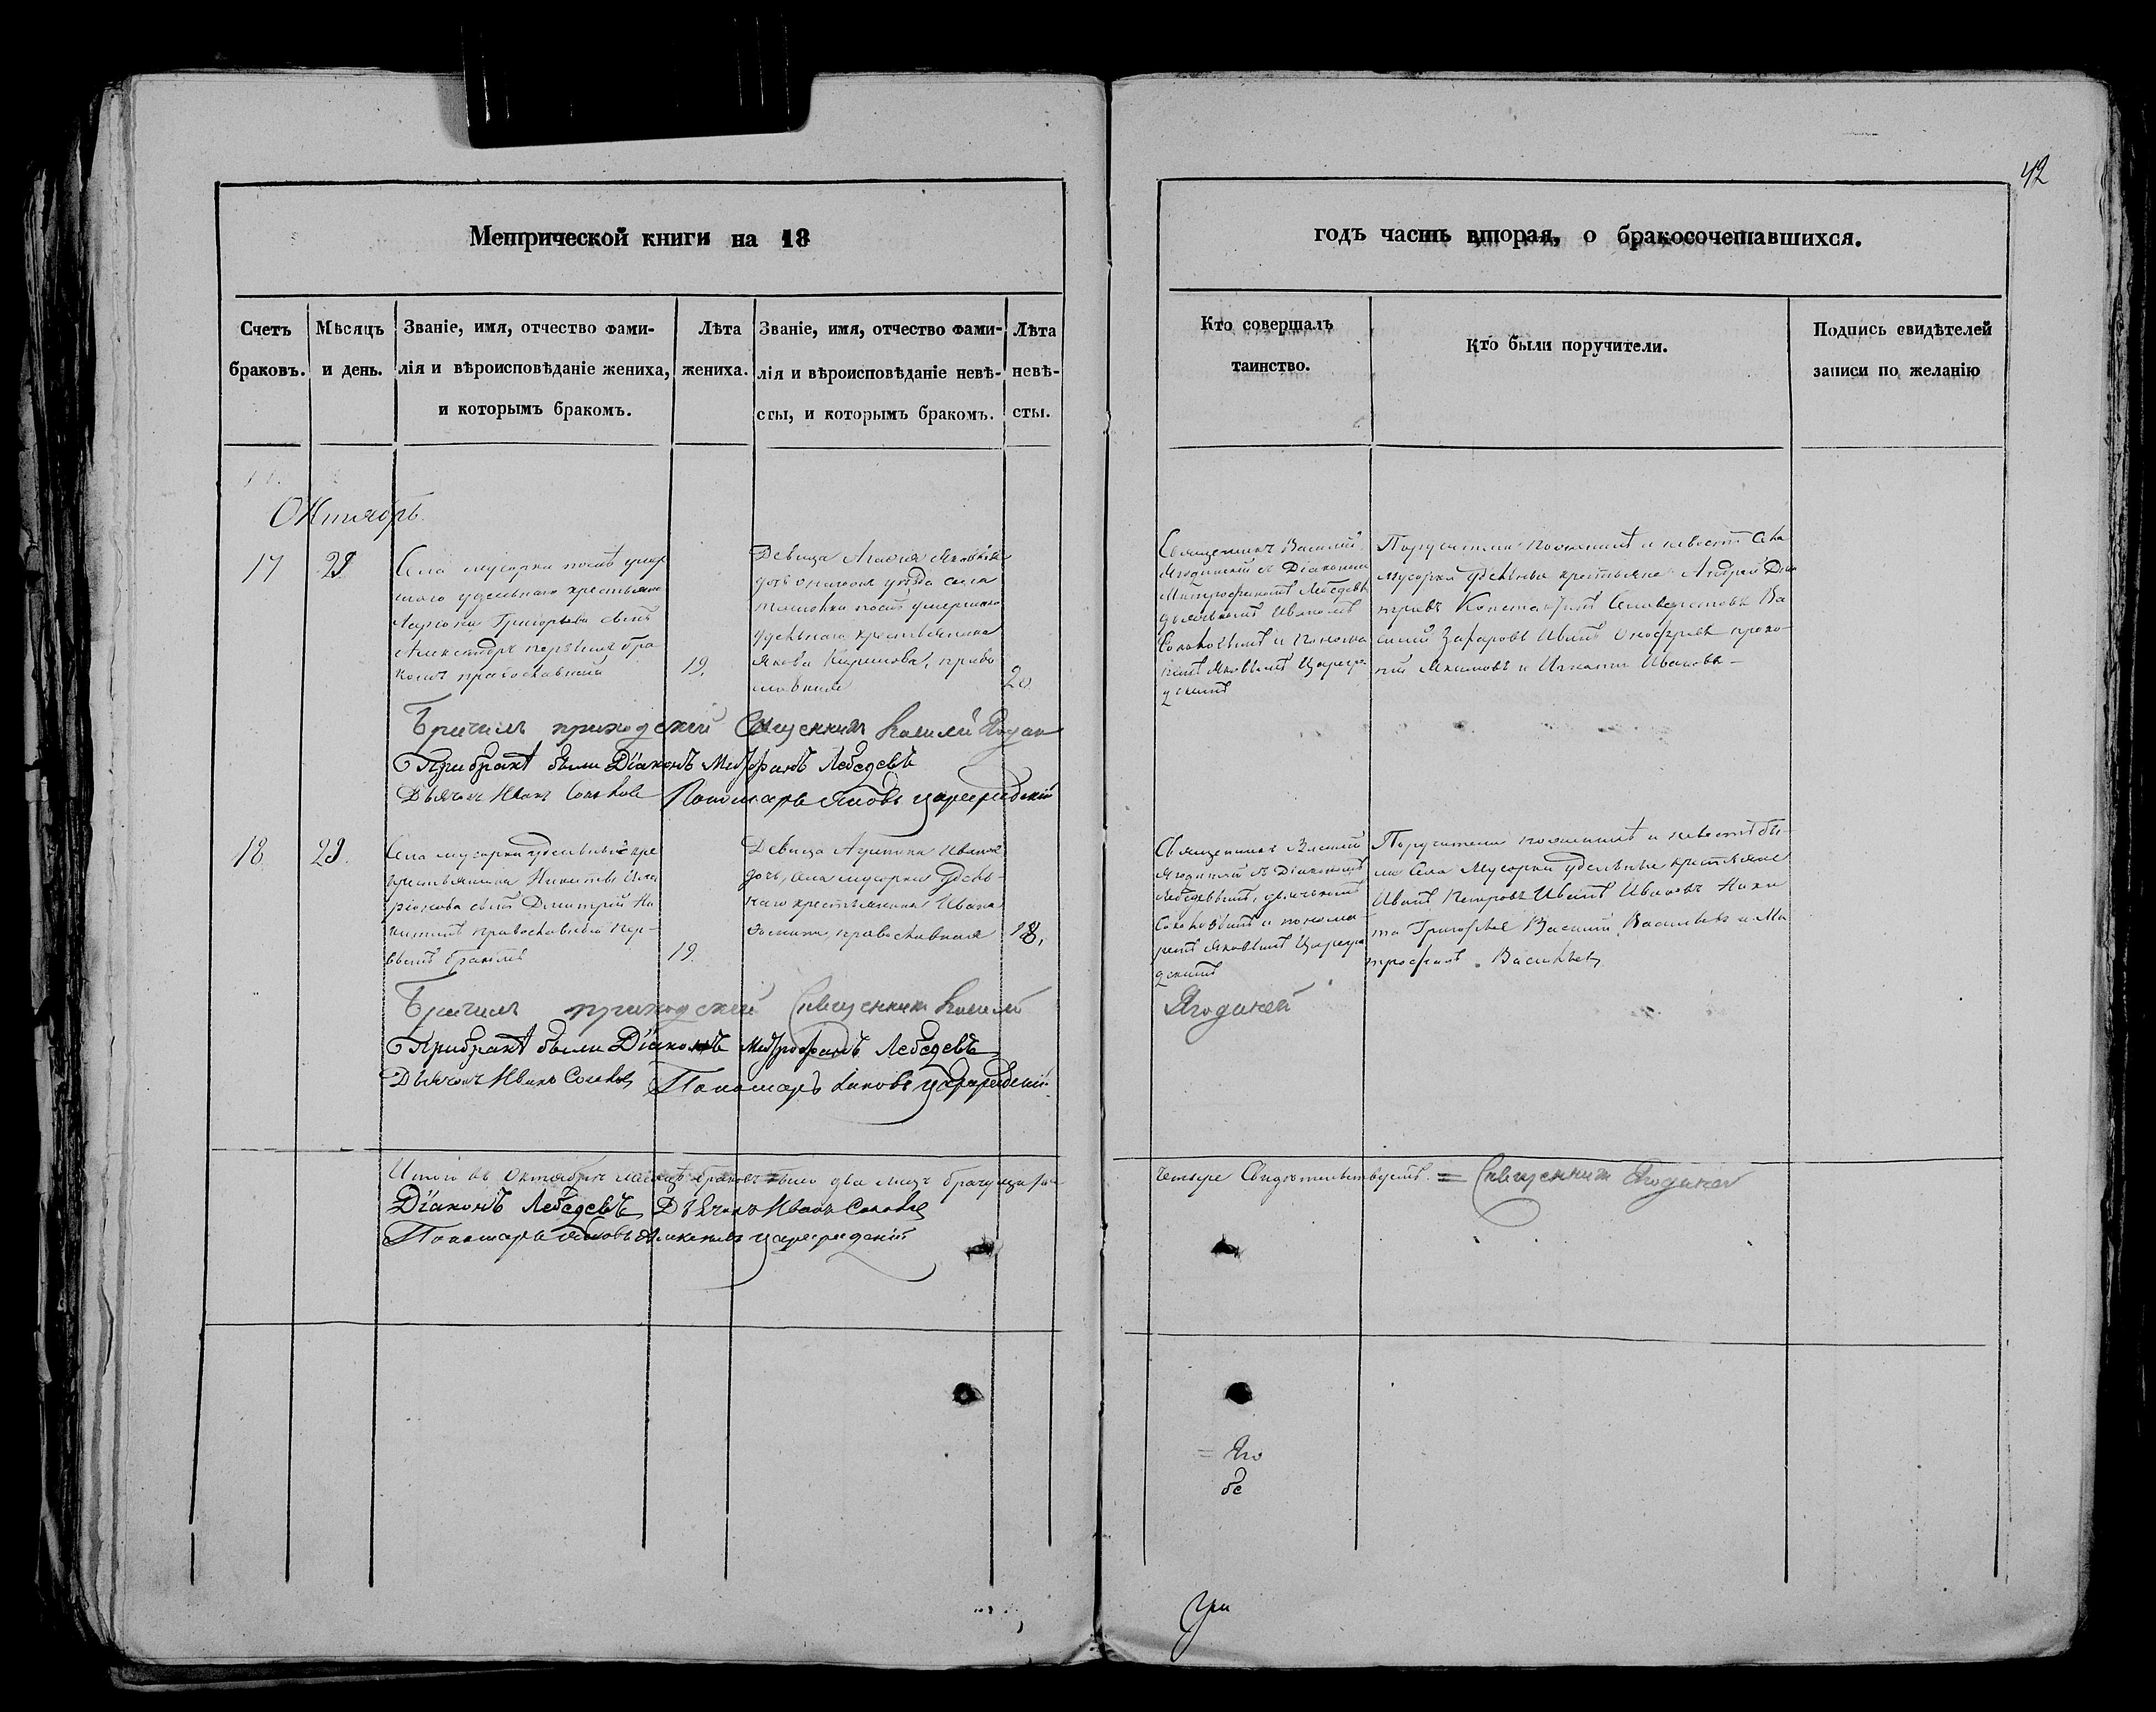 42
Метрической книги на 18
годъ часть вторая, о бракосочетавшихся.
Счетъ браковъ.
Мѣсяцъ и день.
Званіе, имя, отчество фами-
лія и вѣроисповѣданіе жениха,
и которымъ бракомъ.
Лѣта
жениха.
Званіе, имя, отчество фами-
лія и вѣроисповѣданіе невѣ-
сты, и которымъ бракомъ.
Лѣта
невѣ-
сты.
Кто совершалъ
таинство.
Кто были поручители.
Подпись свидѣтелей
записи по желанію
Октябрь.
17
29
Села мусорки послѣ умер
шаго удельнаго крестьянина
Григорьева сынъ
Александръ первымъ бра
комъ православный
19.
Девица Яковлева
дочь уѣзда села
ташолки послѣ умершаго
удельнаго крестьянина
Якова Кирилова, право
славная
20
Священникъ Василий
Ягодинский съ Діакономъ
Митрофаномъ Лебедевымъ
дьячкомъ Иваномъ
Соколовымъ и понома
ремъ Яковымъ Цареград
скимъ
Поручители по женихѣ и невестѣ села
мусорки удельные крестьяне Андрей
Константинъ Селиверстовъ Ва
силий Захаровъ Иванъ Онофриевъ проко
пий Якимовъ и Игнатий Ивановъ
приходский Священникъ Василий
При бракѣ были Діаконъ Митрофанъ Лебедевъ
Дьячокъ Иванъ Соколовъ Пономарь Яковъ Цареградскій
18
29.
Села мусорки удельнаго кре
крестьянина Никиты Ила
ріонова сынъ Дмитрий Ни
китинъ православный пер-
вымъ бракомъ
19
Девица Агрипина Иванова
дочь, села мусорки удель-
наго крестьянина Ивана
православная
18,
Священникъ Василий
Ягодинский съ Діакономъ
Лебедевымъ, дьячкомъ
Соколовымъ и понома
ремъ Яковымъ Цареград
скимъ
Поручители по женихѣ и невестѣ бы-
ли села Мусорки удельные крестьяне
Иванъ Петровъ Иванъ Ивановъ Ники
та Григорьевъ Василий Васильевъ и Ми
трофанъ Васильевъ
приходский Священникъ Василий
Ягодинский
При бракѣ были Діаконъ Митрофанъ Лебедевъ
Дьячокъ Иванъ Соколовъ Пономарь Яковъ Цареградскій
Итого въ Октябре месяцѣ браковъ было два лицъ
четыре Свидетельствуетъ = Священникъ Ягодинский
Діаконъ Лебедевъ Дьячокъ Иванъ Соколовъ
Пономарь Яковъ Цареградскій
= Яго
бе